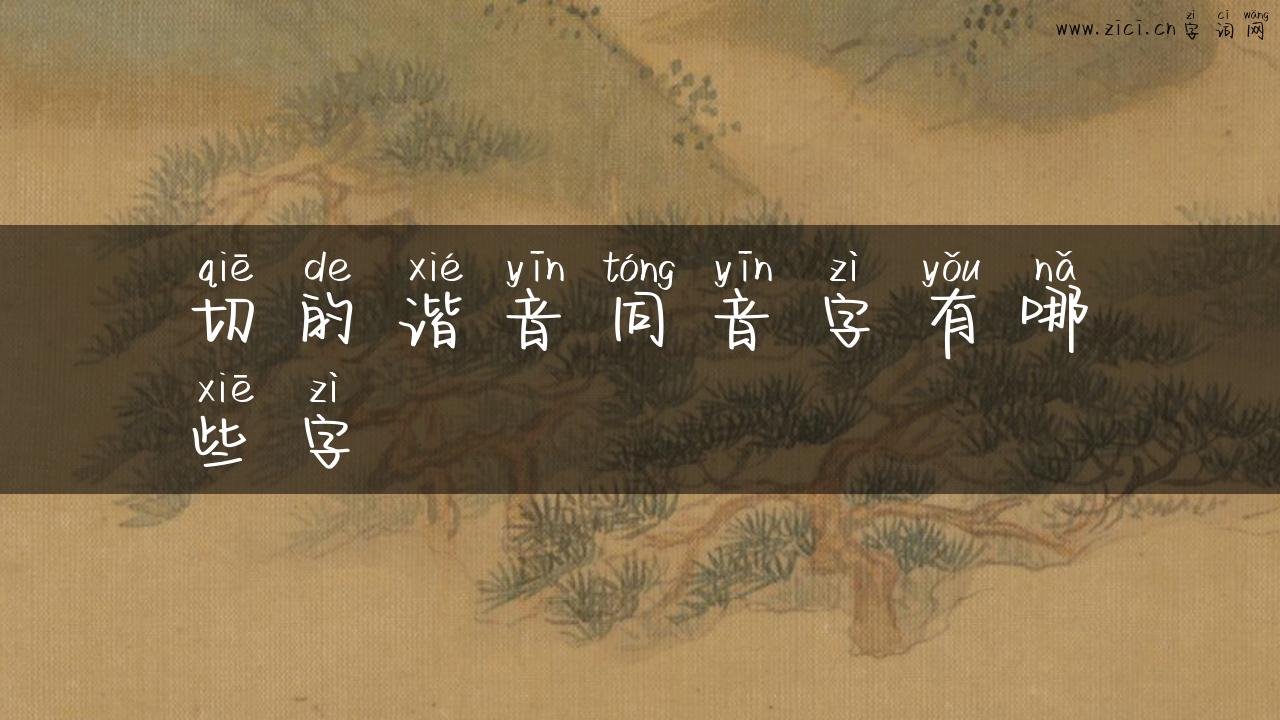 www.zici.cn 字词网
zì cí wǎng
qiē de xié yīn tóng yīn zì yǒu nǎ
切的谐音同音字有哪
xiē zì
些字